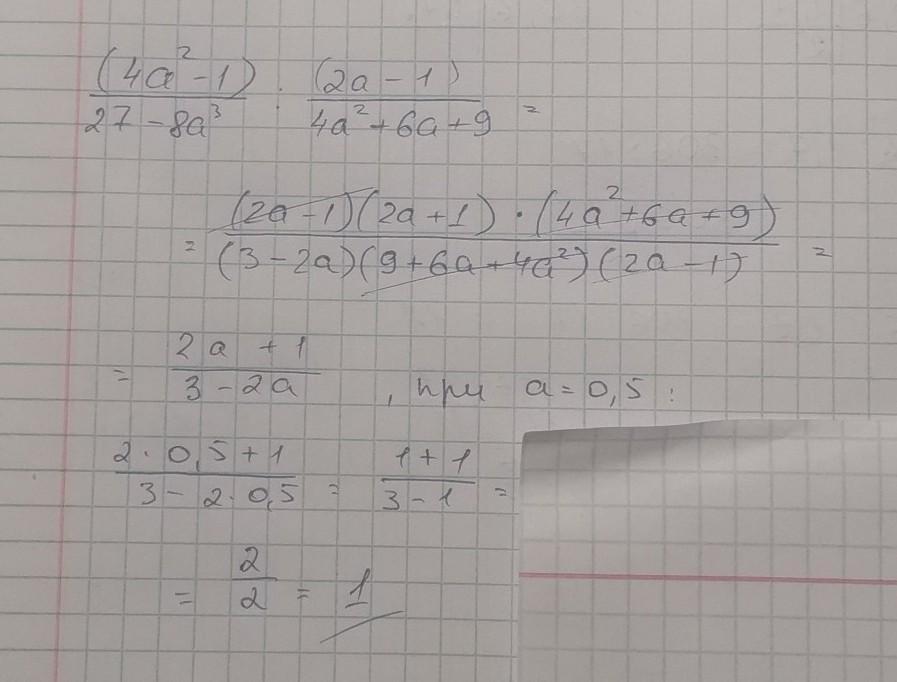 (4a²-1)/(27-8a³) : (2a-1)/(4a²+6a+9) =
= ((2a-1)(2a+1)·(4a²+6a+9))/((3-2a)(9+6a+4a²)(2a-1)) =
= (2a+1)/(3-2a) , при a=0,5:
(2·0,5+1)/(3-2·0,5) = (1+1)/(3-1) =
= 2/2 = 1